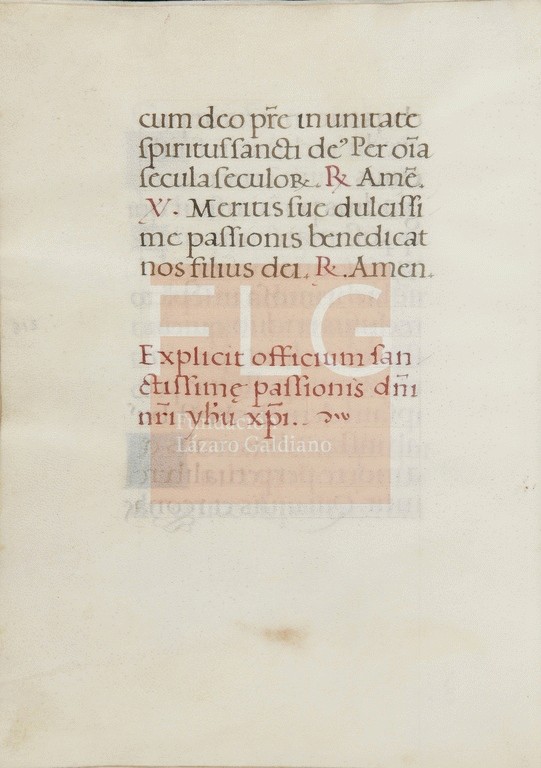 cum deo pr̄e in unitate
spiritussancti de⁹ Per oīa
secula seculoꝝ. ℟ Amē.
℣. Meritis sue dulcissi
me passionis benedicat
nos filius dei. ℟. Amen.
Explicit officium san
ctissimę passionis dn̄i
nr̄i yhu xp̄i.
FLG
Fundación
Lázaro Galdiano